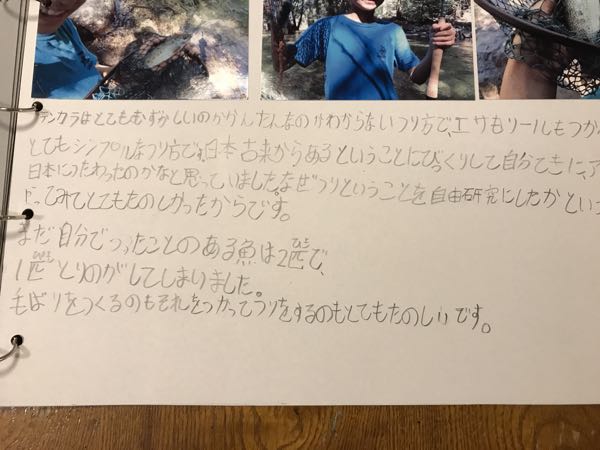 テンカラはとてもむずかしいのかかんたんなのかわからないつり方で、エサもリールもつか
とてもシンプルなつり方です。日本古来からあるということにびっくりして自分てきに、ア
日本につたわったのかなと思っていました。なぜつりということを自由研究にしたかという
やってみてとてもたのしかったからです。
まだ自分でつったことのある魚は2匹ひきで、
1匹ぴきとりのがしてしまいました。
毛ばりをつくるのもそれをつかってつりをするのもとてもたのしいです。